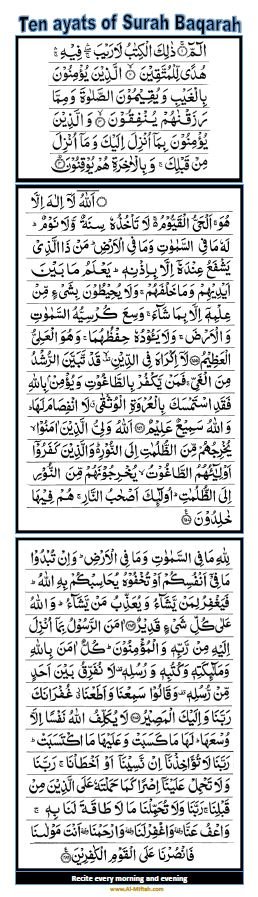 Ten ayats of Surah Baqarah
الٓمّٓ ذٰلِكَ الْكِتٰبُ لَا رَيْبَ فِيْهِ
هُدًى لِّلْمُتَّقِيْنَ الَّذِيْنَ يُؤْمِنُوْنَ
بِالْغَيْبِ وَيُقِيْمُوْنَ الصَّلٰوةَ وَمِمَّا
رَزَقْنٰهُمْ يُنْفِقُوْنَ وَالَّذِيْنَ
يُؤْمِنُوْنَ بِمَآ اُنْزِلَ اِلَيْكَ وَمَآ اُنْزِلَ
مِنْ قَبْلِكَ وَبِالْاٰخِرَةِ هُمْ يُوْقِنُوْنَ
اَللّٰهُ لَآ اِلٰهَ اِلَّا
هُوَ اَلْحَيُّ الْقَيُّوْمُ لَا تَاْخُذُهٗ سِنَةٌ وَّلَا نَوْمٌ
لَهٗ مَا فِي السَّمٰوٰتِ وَمَا فِي الْاَرْضِ مَنْ ذَا الَّذِيْ
يَشْفَعُ عِنْدَهٗٓ اِلَّا بِاِذْنِهٖ يَعْلَمُ مَا بَيْنَ
اَيْدِيْهِمْ وَمَا خَلْفَهُمْ وَلَا يُحِيْطُوْنَ بِشَيْءٍ مِّنْ
عِلْمِهٖٓ اِلَّا بِمَا شَآءَ وَسِعَ كُرْسِيُّهُ السَّمٰوٰتِ
وَالْاَرْضَ وَلَا يَـُٔوْدُهٗ حِفْظُهُمَا وَهُوَ الْعَلِيُّ
الْعَظِيْمُ لَآ اِكْرَاهَ فِي الدِّيْنِ قَدْ تَّبَيَّنَ الرُّشْدُ
مِنَ الْغَيِّ فَمَنْ يَّكْفُرْ بِالطَّاغُوْتِ وَيُؤْمِنْ بِاللّٰهِ
فَقَدِ اسْتَمْسَكَ بِالْعُرْوَةِ الْوُثْقٰى لَا انْفِصَامَ لَهَا
وَاللّٰهُ سَمِيْعٌ عَلِيْمٌ اَللّٰهُ وَلِيُّ الَّذِيْنَ اٰمَنُوْا
يُخْرِجُهُمْ مِّنَ الظُّلُمٰتِ اِلَى النُّوْرِ وَالَّذِيْنَ كَفَرُوْٓا
اَوْلِيٰٓـُٔهُمُ الطَّاغُوْتُ يُخْرِجُوْنَهُمْ مِّنَ النُّوْرِ
اِلَى الظُّلُمٰتِ اُولٰٓئِكَ اَصْحٰبُ النَّارِ هُمْ فِيْهَا
خٰلِدُوْنَ
لِلّٰهِ مَا فِي السَّمٰوٰتِ وَمَا فِي الْاَرْضِ وَاِنْ تُبْدُوْا
مَا فِيْٓ اَنْفُسِكُمْ اَوْ تُخْفُوْهُ يُحَاسِبْكُمْ بِهِ اللّٰهُ
فَيَغْفِرُ لِمَنْ يَّشَآءُ وَيُعَذِّبُ مَنْ يَّشَآءُ وَاللّٰهُ
عَلٰى كُلِّ شَيْءٍ قَدِيْرٌ اٰمَنَ الرَّسُوْلُ بِمَآ اُنْزِلَ
اِلَيْهِ مِنْ رَّبِّهٖ وَالْمُؤْمِنُوْنَ كُلٌّ اٰمَنَ بِاللّٰهِ
وَمَلٰٓئِكَتِهٖ وَكُتُبِهٖ وَرُسُلِهٖ لَا نُفَرِّقُ بَيْنَ اَحَدٍ
مِّنْ رُّسُلِهٖ وَقَالُوْا سَمِعْنَا وَاَطَعْنَا غُفْرَانَكَ
رَبَّنَا وَاِلَيْكَ الْمَصِيْرُ لَا يُكَلِّفُ اللّٰهُ نَفْسًا اِلَّا
وُسْعَهَا لَهَا مَا كَسَبَتْ وَعَلَيْهَا مَا اكْتَسَبَتْ
رَبَّنَا لَا تُؤَاخِذْنَآ اِنْ نَّسِيْنَآ اَوْ اَخْطَاْنَا رَبَّنَا
وَلَا تَحْمِلْ عَلَيْنَآ اِصْرًا كَمَا حَمَلْتَهٗ عَلَى الَّذِيْنَ مِنْ
قَبْلِنَا رَبَّنَا وَلَا تُحَمِّلْنَا مَا لَا طَاقَةَ لَنَا بِهٖ
وَاعْفُ عَنَّا وَاغْفِرْ لَنَا وَارْحَمْنَا اَنْتَ مَوْلٰىنَا
فَانْصُرْنَا عَلَى الْقَوْمِ الْكٰفِرِيْنَ
Recite every morning and evening
www.Al-Miftah.com